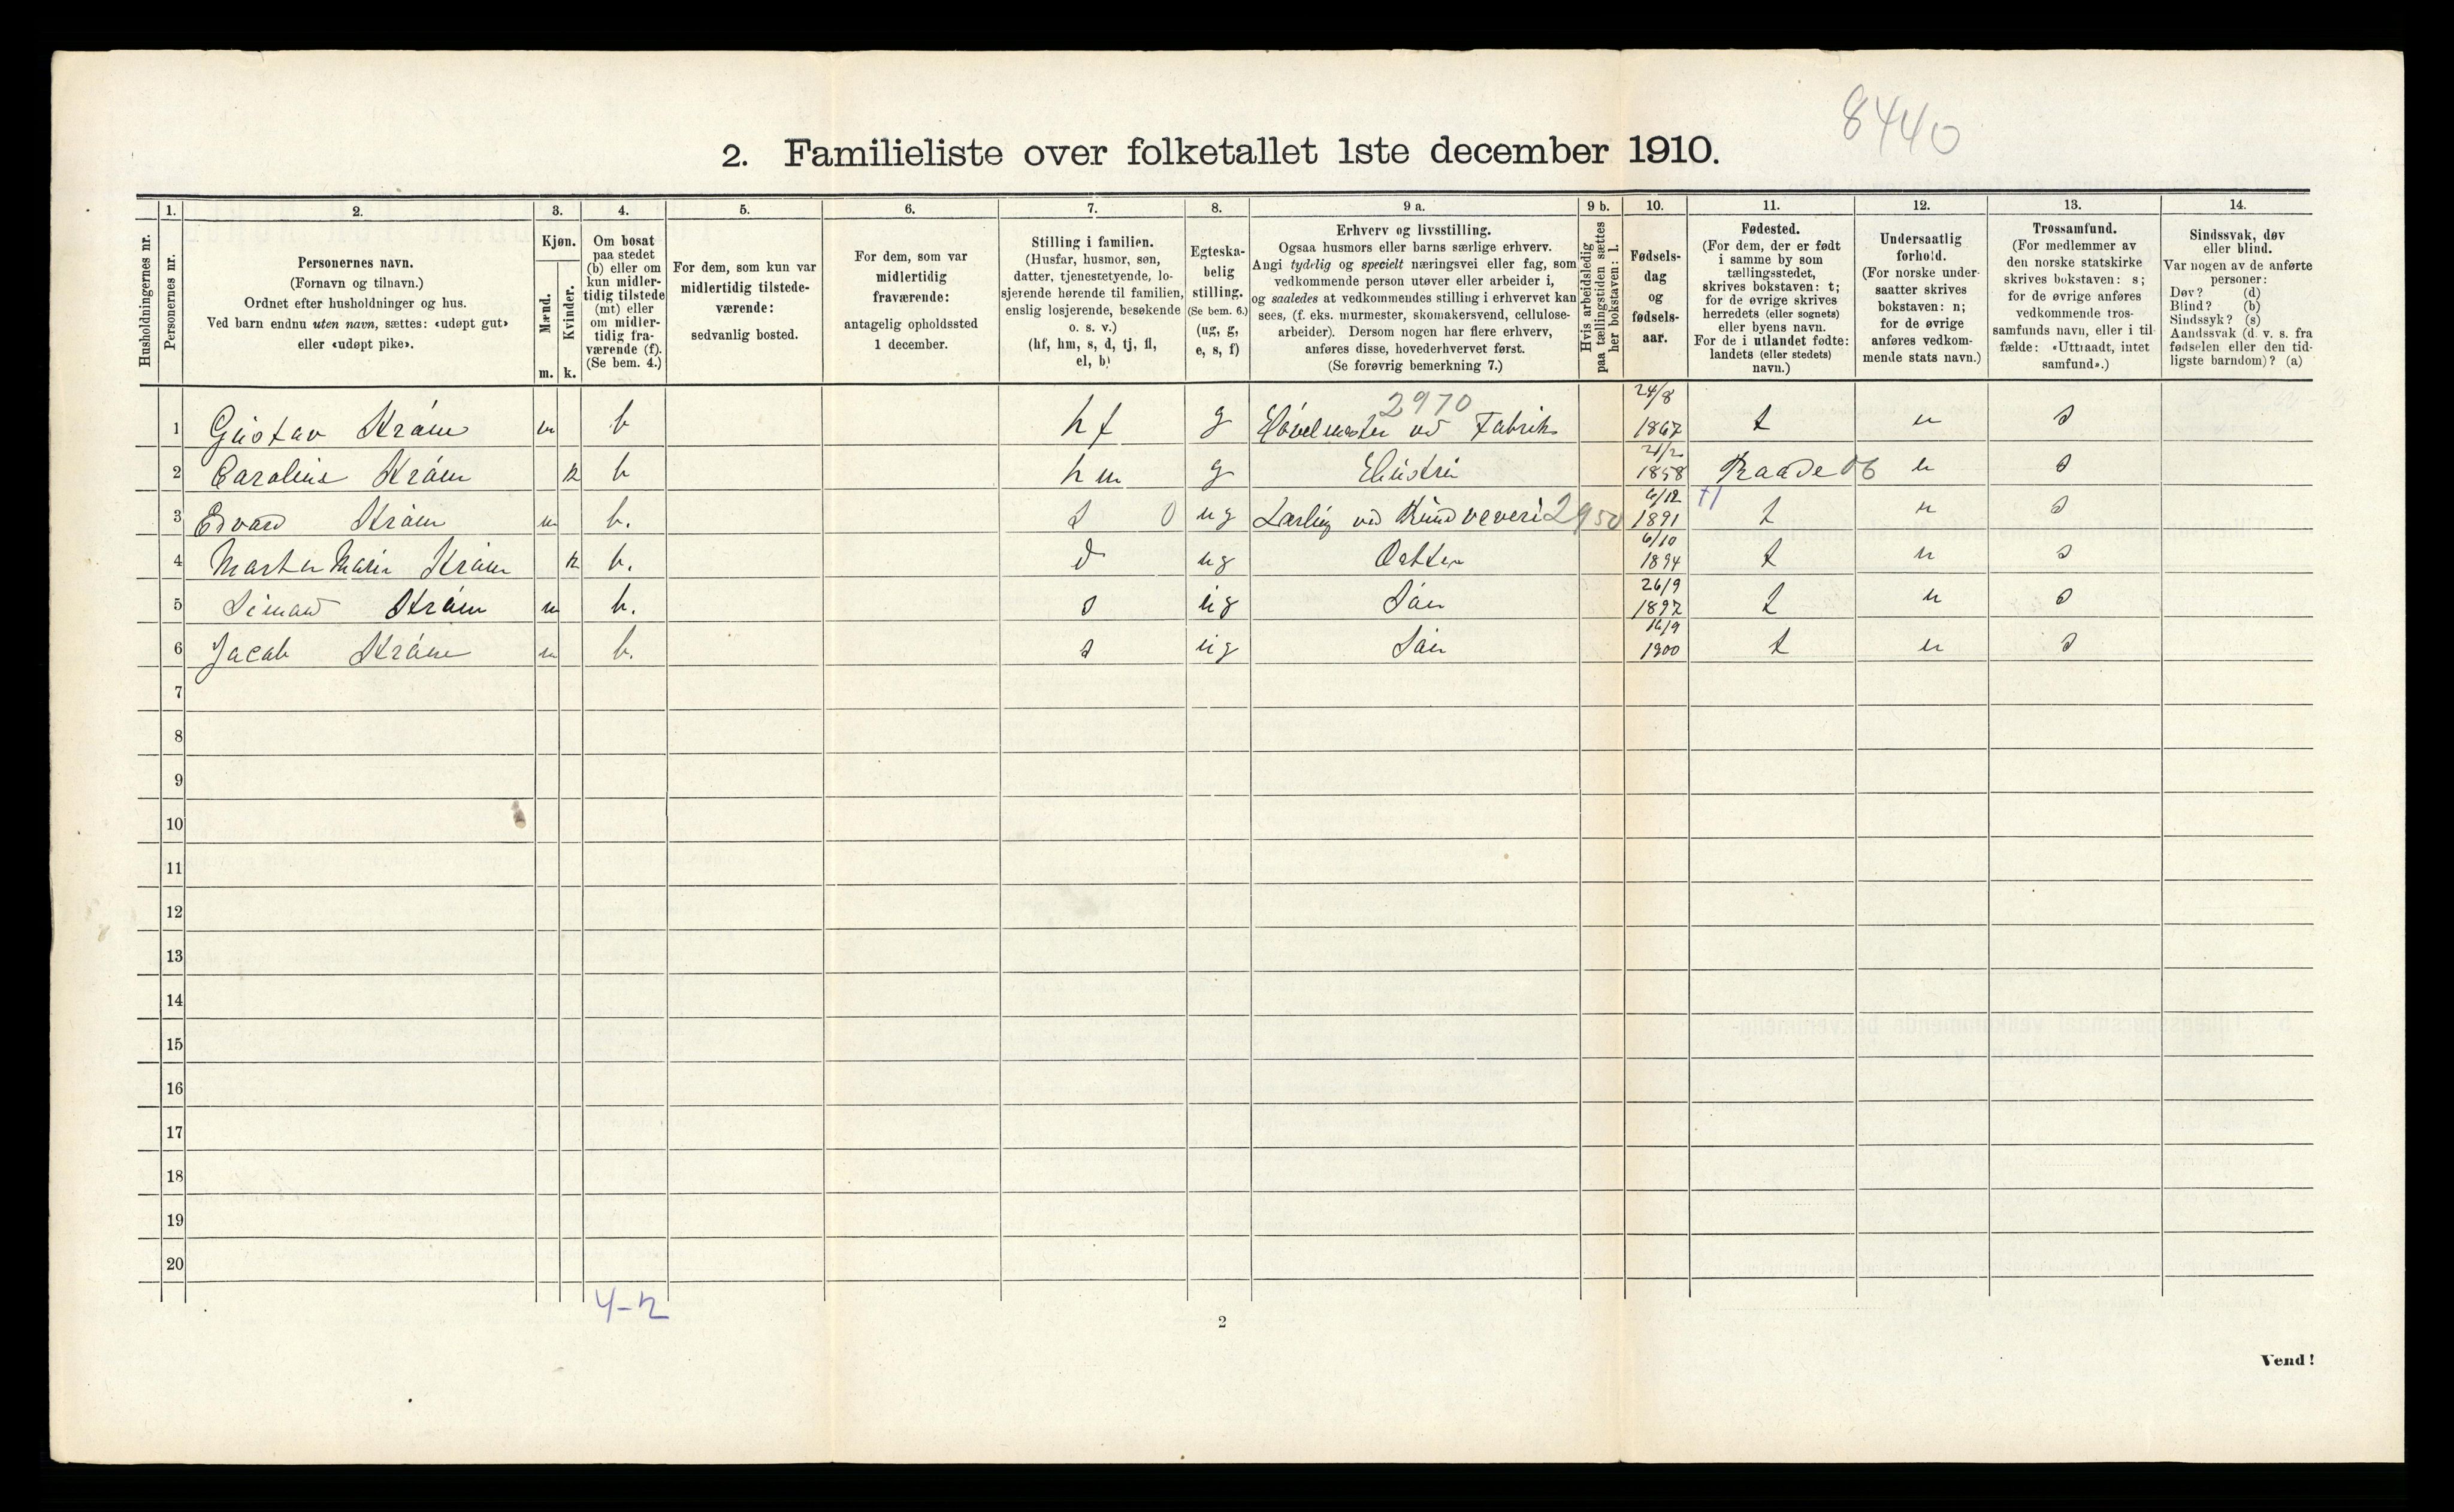 8440
2. Familieliste over folketallet 1ste december 1910.
Husholdningernes nr.
1.
Personernes nr.
2.
Personernes navn.
(Fornavn og tilnavn.)
Ordnet efter husholdninger og hus.
Ved barn endnu uten navn, sættes: «udøpt gut»
eller «udøpt pike».
3.
Kjøn.
Mænd.
Kvinder.
m. k.
4.
Om bosat
paa stedet
(b) eller om
kun midler-
tidig tilstede
(mt) eller
om midler-
tidig fra-
værende (f).
(Se bem. 4.)
5.
For dem, som kun var
midlertidig tilstede-
værende:
sedvanlig bosted.
6.
For dem, som var
midlertidig
fraværende:
antagelig opholdssted
1 december.
7.
Stilling i familien.
(Husfar, husmor, søn,
datter, tjenestetyende, lo-
sjerende hørende til familien,
enslig losjerende, besøkende
o. s. v.)
(hf, hm, s, d, tj, fl,
el, b)
8.
Egteska-
belig
stilling.
(Se bem. 6.)
(ug, g,
e, s, f)
9 a.
Erhverv og livsstilling.
Ogsaa husmors eller barns særlige erhverv.
Angi tydelig og specielt næringsvei eller fag, som
vedkommende person utøver eller arbeider i,
og saaledes at vedkommendes stilling i erhvervet kan
sees, (f. eks. murmester, skomakersvend, cellulose-
arbeider). Dersom nogen har flere erhverv,
anføres disse, hovederhvervet først.
(Se forøvrig bemerkning 7.)
9 b.
Hvis arbeidsledig
paa tællingstiden sættes
her bokstaven: l.
10.
Fødsels-
dag
og
fødsels-
aar.
11.
Fødested.
(For dem, der er født
i samme by som
tællingsstedet,
skrives bokstaven: t;
for de øvrige skrives
herredets (eller sognets)
eller byens navn.
For de i utlandet fødte:
landets (eller stedets)
navn.)
12.
Undersaatlig
forhold.
(For norske under-
saatter skrives
bokstaven: n;
for de øvrige
anføres vedkom-
mende stats navn.)
13.
Trossamfund.
(For medlemmer av
den norske statskirke
skrives bokstaven: s;
for de øvrige anføres
vedkommende tros-
samfunds navn, eller i til-
fælde: «Uttraadt, intet
samfund».)
14.
Sindssvak, døv
eller blind.
Var nogen av de anførte
personer:
Døv? (d)
Blind? (b)
Sindssyk? (s)
Aandssvak (d. v. s. fra
fødselen eller den tid-
ligste barndom)? (a)
1 Gustav m b hf g 2970 ved Fabrik 24/8 1867 t n s
2 k b hm g Hustru 21/2 1858 Raade 06 n s
3 Edvard m b. s 0 ug Lærling ved 2950 6/12 1891 t n s
4 Marie k b. d ug Datter 6/10 1894 t n s
5 m b. s ug Søn 26/9 1897 t n s
6 Jacob m b. s ug Søn 16/9 1900 t n s
7
8
9
10
11
12
13
14
15
16
17
18
19
20
4-2
2
Vend!